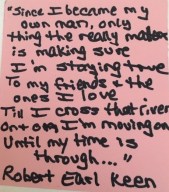 "Since I became my
own man, only
thing the really matters
is making sure
I'm staying true
To my friends & the
ones I love
Till I cross that river
on & on I'm moving on
Until my time is
through..."
Robert Earl Keen